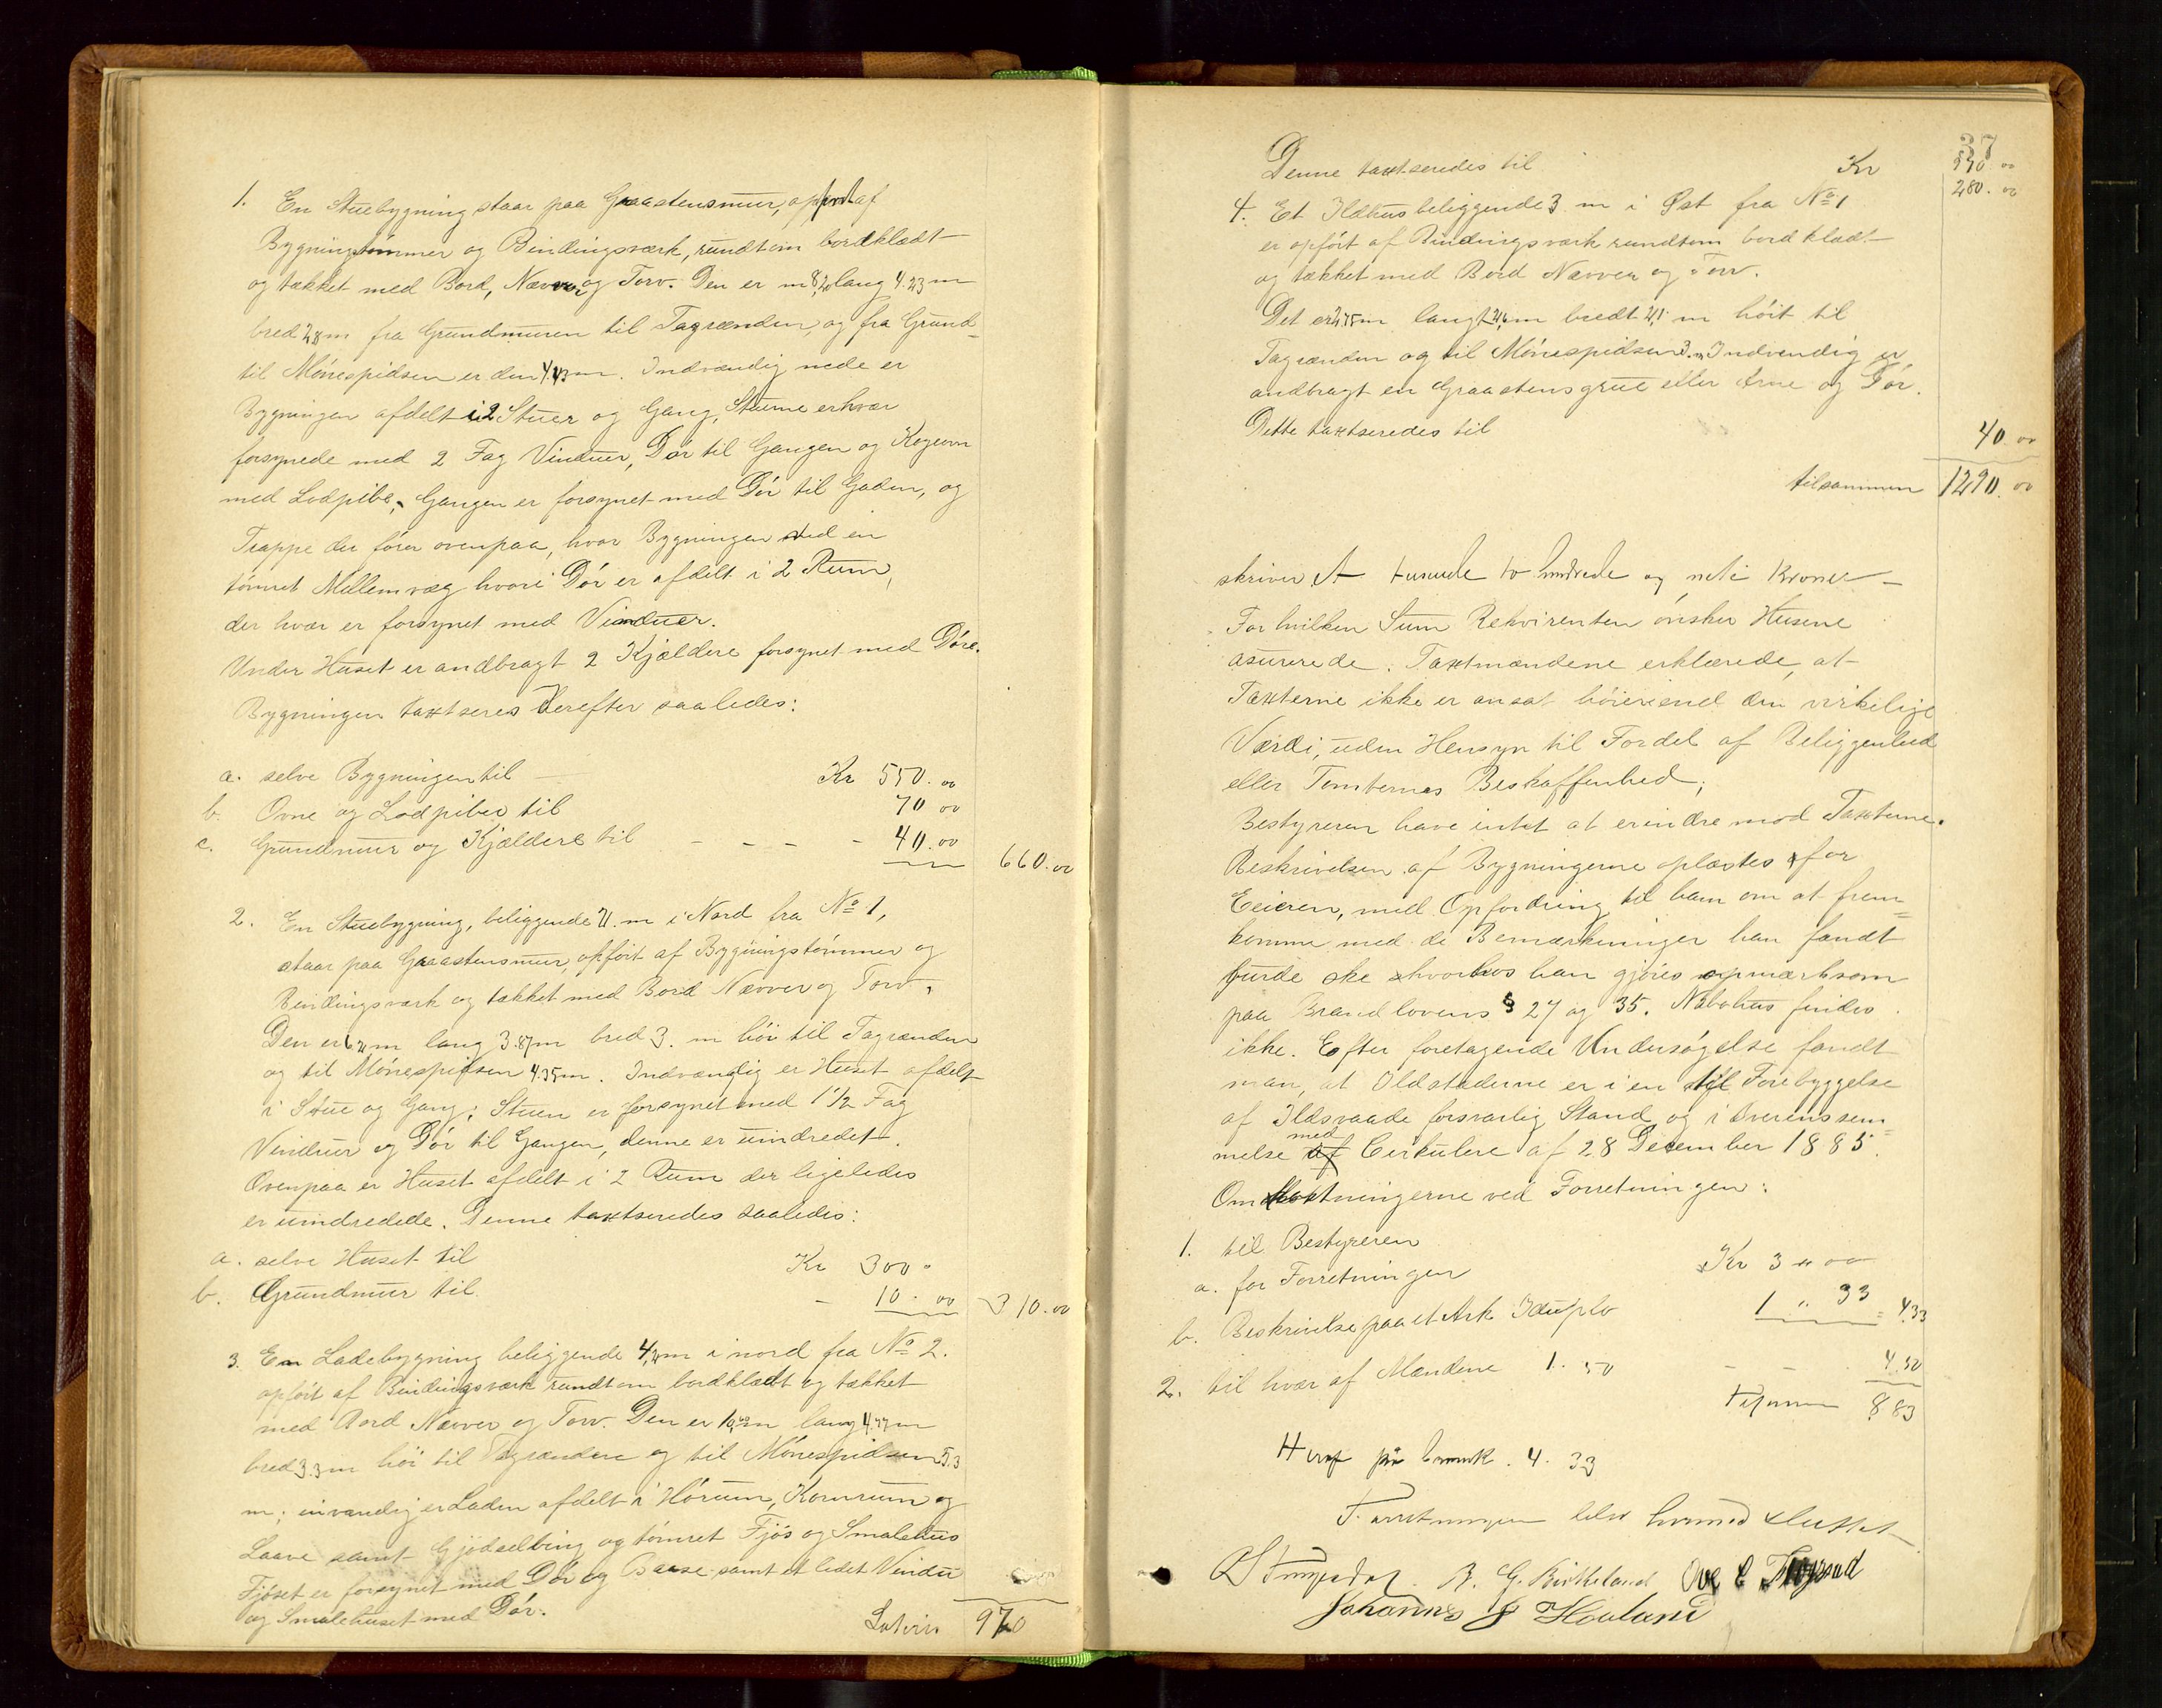 1. En Stuebygning staar paa Graastensmur, opført af
Bygningstømmer og Bindingsværk, rundtom bordklædt
og tækket med Bord, Næver og Torv. Den er m 8,20 lang 4.23 m
bred 2,8 m fra Grundmuren til Tagrænden, og fra Grund-
til Mönespidsen er den 4.43 m. Indvændig nede er
Bygningen afdelt i 2 Stuer og Gang, Stuerne er hvær
forsynede med 2 Fag Vinduer, Dør til Gangen og Kogeovn
med Lodpibe, Gangen er forsynet med Dør til Gaden, og
Trappe der fører ovenpaa, hvor Bygningen ved en
tømret Mellemvæg hvori Dør er afdelt i 2 Rum,
der hvær er forsynet med Vinduer.
Under Huset er andbragt 2 Kjældere forsynet med Döre.
Bygningen taxtseres derefter saaledes:
a. selve Bygningen til Kr 550.00
b. Ovne og Lodpiber til 70 00
c. Grundmur og Kjældere til - - - - 40.00 660.00
2. En Stuebygning, beliggende 21. m i Nord fra No 1,
staar paa Graastensmur, opført af Bygningstømmer og
Bindingsværk og tækket med Bord Næver og Torv.
Den er m lang 3.87 m bred 3. m høi til Tagrænden
og til Mönespidsen 4.35 m. Indvændig er Huset afdelt
i Stue og Gang; Stuen er forsynet med 1 1/2 Fag
Vinduer og Dør til Gangen, denne er uindredet.
Ovenpaa er Huset afdelt i 2 Rum der ligeledes
er uindredede. Denne taxtseredes saaledes:
a. selve Huset til Kr 300 "
b. Grundmur til - 10.00 310.00
3. En Ladebygning beliggende m i nord fra No 2.
opført af Bindingsværk rundtom bordklædt og tækket
med Bord Næver og Torv. Den er m lang 4.77 m
bred 3.3 m høi til Tagrænden og til Mönespidsen 5.3
m; invændig er Laden afdelt i Hørum, Kornrum og
Laave samt Gjødselbing og tømret Fjøs og Smalehus
Fjøset er forsynet med Dør og Baase samt et lidet Vindu
og Smalehuset med Dør.
Lateris 970
37
Denne taxtseredes til Kr
280.00
4. Et Ildhus beliggende 3 m i Øst fra No 1
er opført af Bindingsværk rundtom bord klædt
og tækket med Bord Næver og Torv.
Det er 2.75 m langt m bredt 2,1 m høit til
Tagrænden og til Mönespidsen 3. m Indvendig er
andbragt en Graastensgrue eller Arne og Dør.
Dette taxtseredes til 40.00
tilsammen 1290.00
skriver Et tusinde to hundrede og niti Kroner -
For hvilken Sum Rekvirenten ønsker Husene
asurerede. Taxtmændene erklærede, at
Taxterne ikke er ansat høiere end den virkelige
Værdi, uden Hensyn til Fordel af Beliggenhed
eller Tomternes Beskaffenhed;
Bestyreren have intet at erindre mod Taxterne.
Beskrivelsen af Bygningerne oplæstes for
Eieren, med Opfordring til ham om at frem=
komme med de Bemærkninger han fandt
burde ske hvorhos han gjøres opmærksom
paa Brandlovens § 27 og 35. Nabohus findes
ikke. Efter foretagende Undersøgelse fandt
man, at Ildstederne er i en til Forebyggelse
af Ildsvaade forsvarlig Stand og i Overenssem=
melse med Cirkulere af 28 December 1885.
Omkostningerne ved Forretningen:
1. til Bestyreren
a. for Forretningen Kr 3 " 00
b. Beskrivelse paa et Ark Iduplo 1 " 33 = 4,33
2. til hvær af Mændene 1. 50 - - 4.50
Tilsammen 8 83
Heraf 4. 33
Forretningen blev hermed sluttet
B. G. Birkeland
Johannes J Hovland